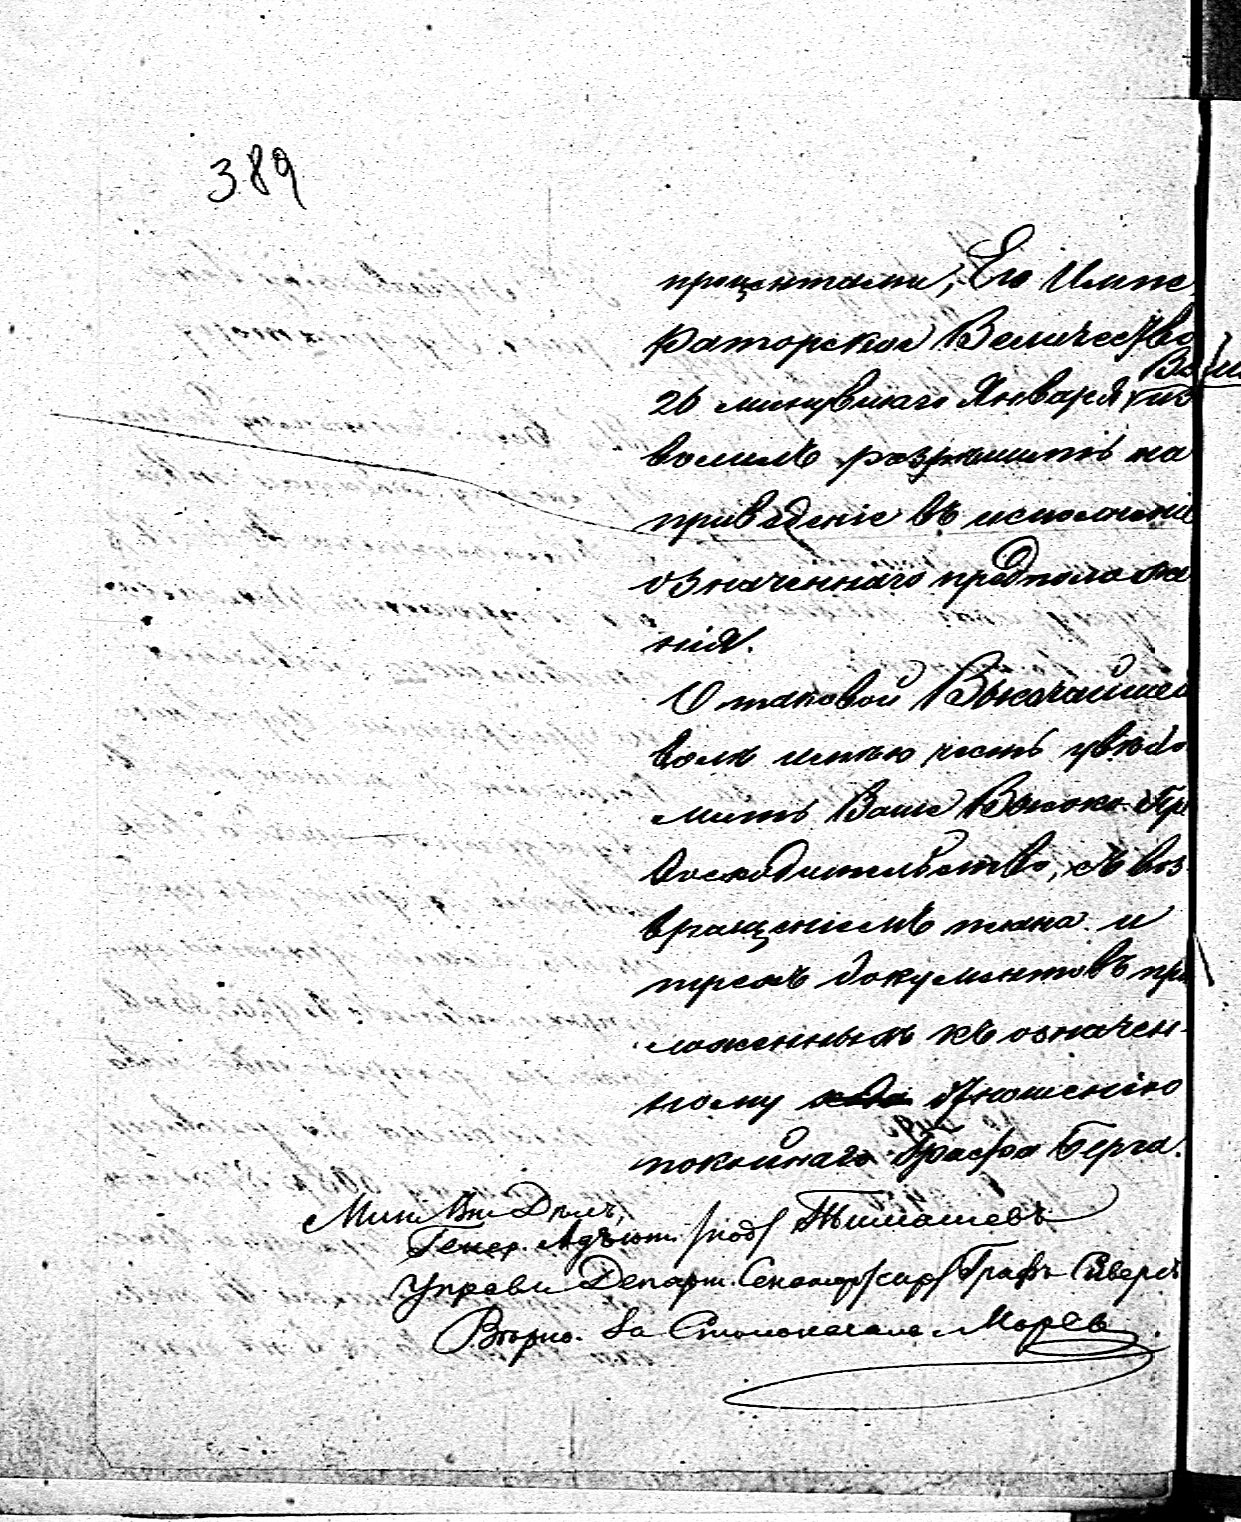 389
процентами, Его Импе
раторское Величество
Высо
26 минувшаго Января из
волилъ разрѣшить на
приведеніе въ исполненіе
означеннаго предположе
нія.
О таковой Высочайшей
волѣ имѣю честь увѣдо
мить Ваше Высоко-Пре
восходительство, съ воз
вращеніемъ плана и
прочихъ документовъ при
ложенныхъ къ означен-
ному отношенію
покойнаго Графа Берга.
Мин. Вн. Дѣлъ,
Генер. Адъют. /под/ Тимашевъ
Управл. Департ. Сенаторъ /скр/ Графъ Сиверсъ
Вѣрно. За Столоначаль. Моревъ